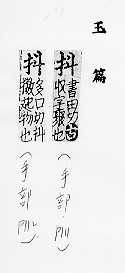 玉篇
抖 書由切古
收字聚也
(手部
抖 多口切抖
擻起物也
(手部